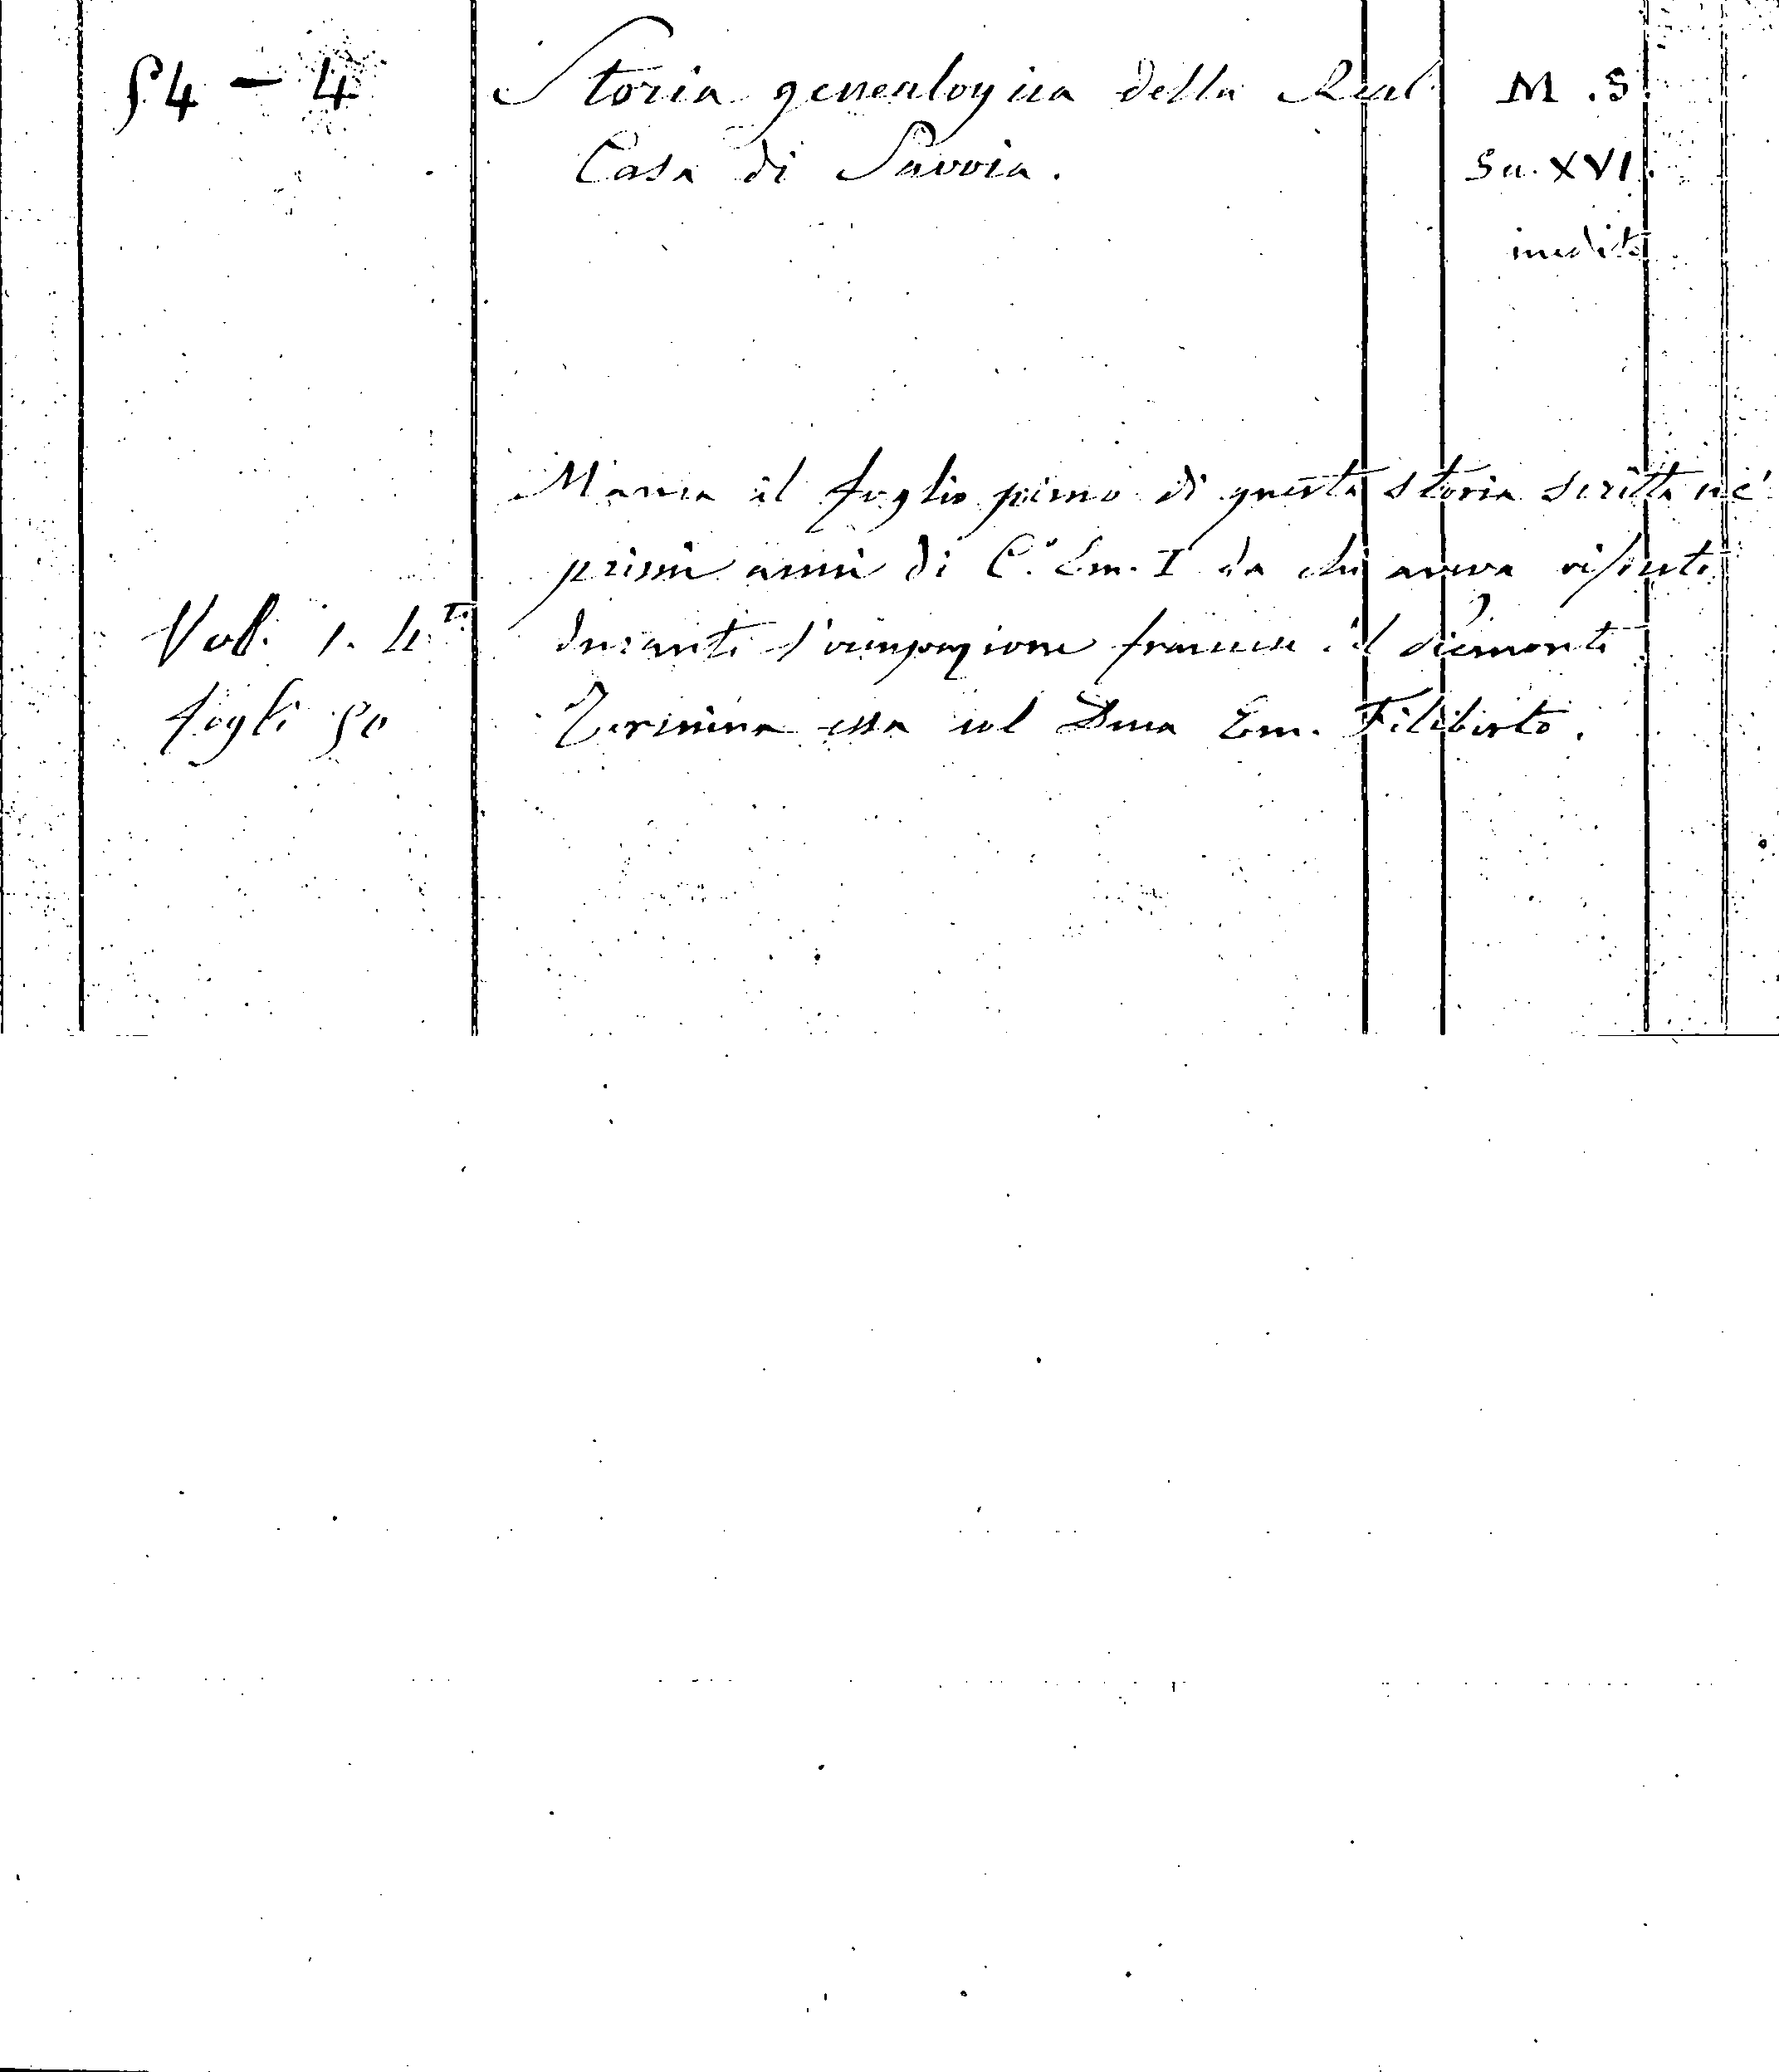 54 - 4 Storia genealogica della Real M. S.
Casa di Savoia. Sec. XVI.
inedito
Manca il foglio primo di questa storia scritta ne'
primi anni di C. Em. I da chi aveva
Vol. 1. 4.to durante l'occupazione francese il Piemonte
fogli 50 Termina essa col Duca Em. Filiberto.